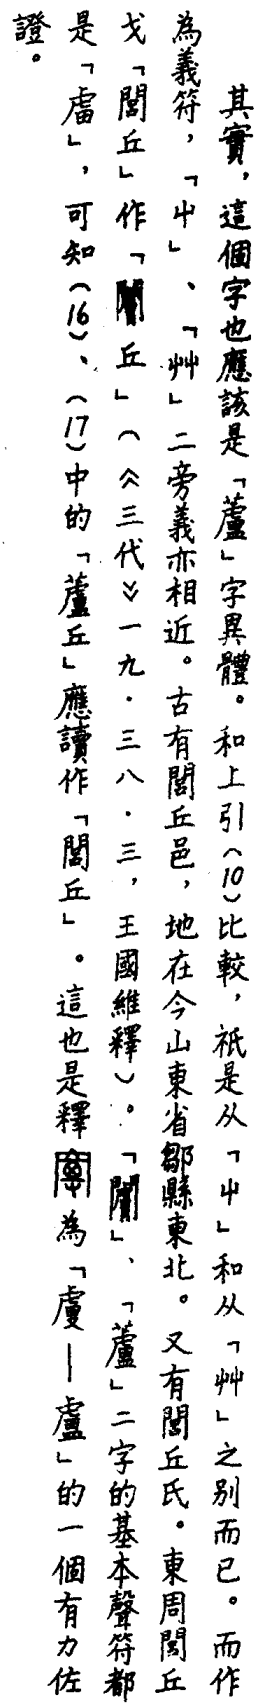 其實，這個字也應該是「蘆」字異體。和上引（10）比較，祇是从「屮」和从「艸」之別而已。而作
為義符，「屮」、「艸」二旁義亦相近。古有閭丘邑，地在今山東省鄒縣東北。又有閭丘氏。東周閭丘
戈「閭丘」作「丘」（《三代》一九．三八．三，王國維釋）。「」、「蘆」二字的基本聲符都
是「𧆨」，可知（16）、（17）中的「蘆丘」應讀作「閭丘」。這也是釋為「虔—盧」的一個有力佐
證。